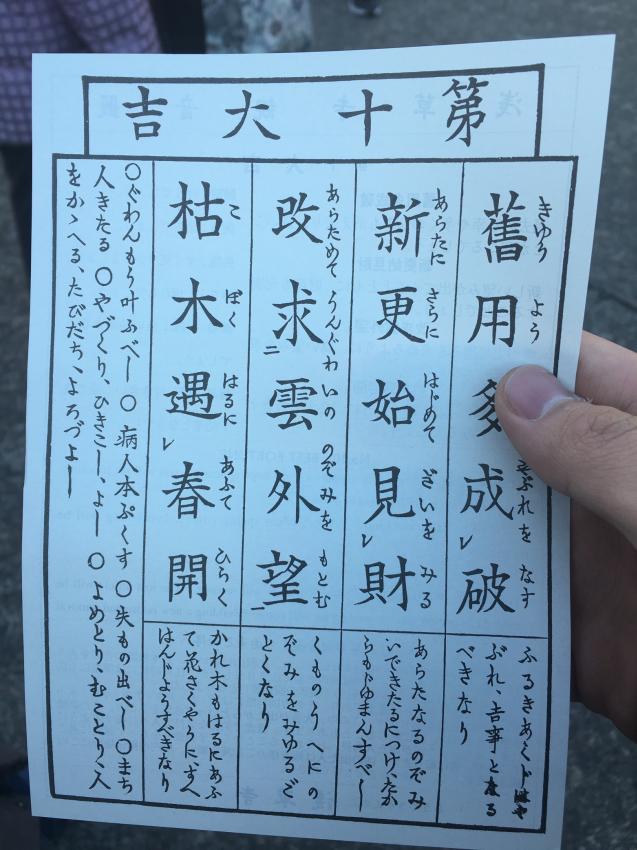 第十大吉
きゆう よう ぶれを なす
舊用夛成破
ふるきあくじはや
ぶれ、吉事となる
べきなり
あらたに さらに はじめて ざいを みる
新更始見レ財
あらたなるのぞみ
いできたるにつけ、たか
らもじゆまんすべし
あらためて うんぐわ いの のぞみを もとむ
改求二雲外望一
くものうへにの
ぞみをみゆるご
とくなり
こ ぼく はるに あふて ひらく
枯木遇レ春開
かれ木もはるにあふ
て花さくやうに、すへ
はんじようすべきなり
○ぐわんもう叶ふべし ○病人本ぷくす ○失もの出べし ○まち
人きたる ○やづくり、ひきこし、よし ○よめとり、むことり、人
をかゝへる、たびだち、よろづよし